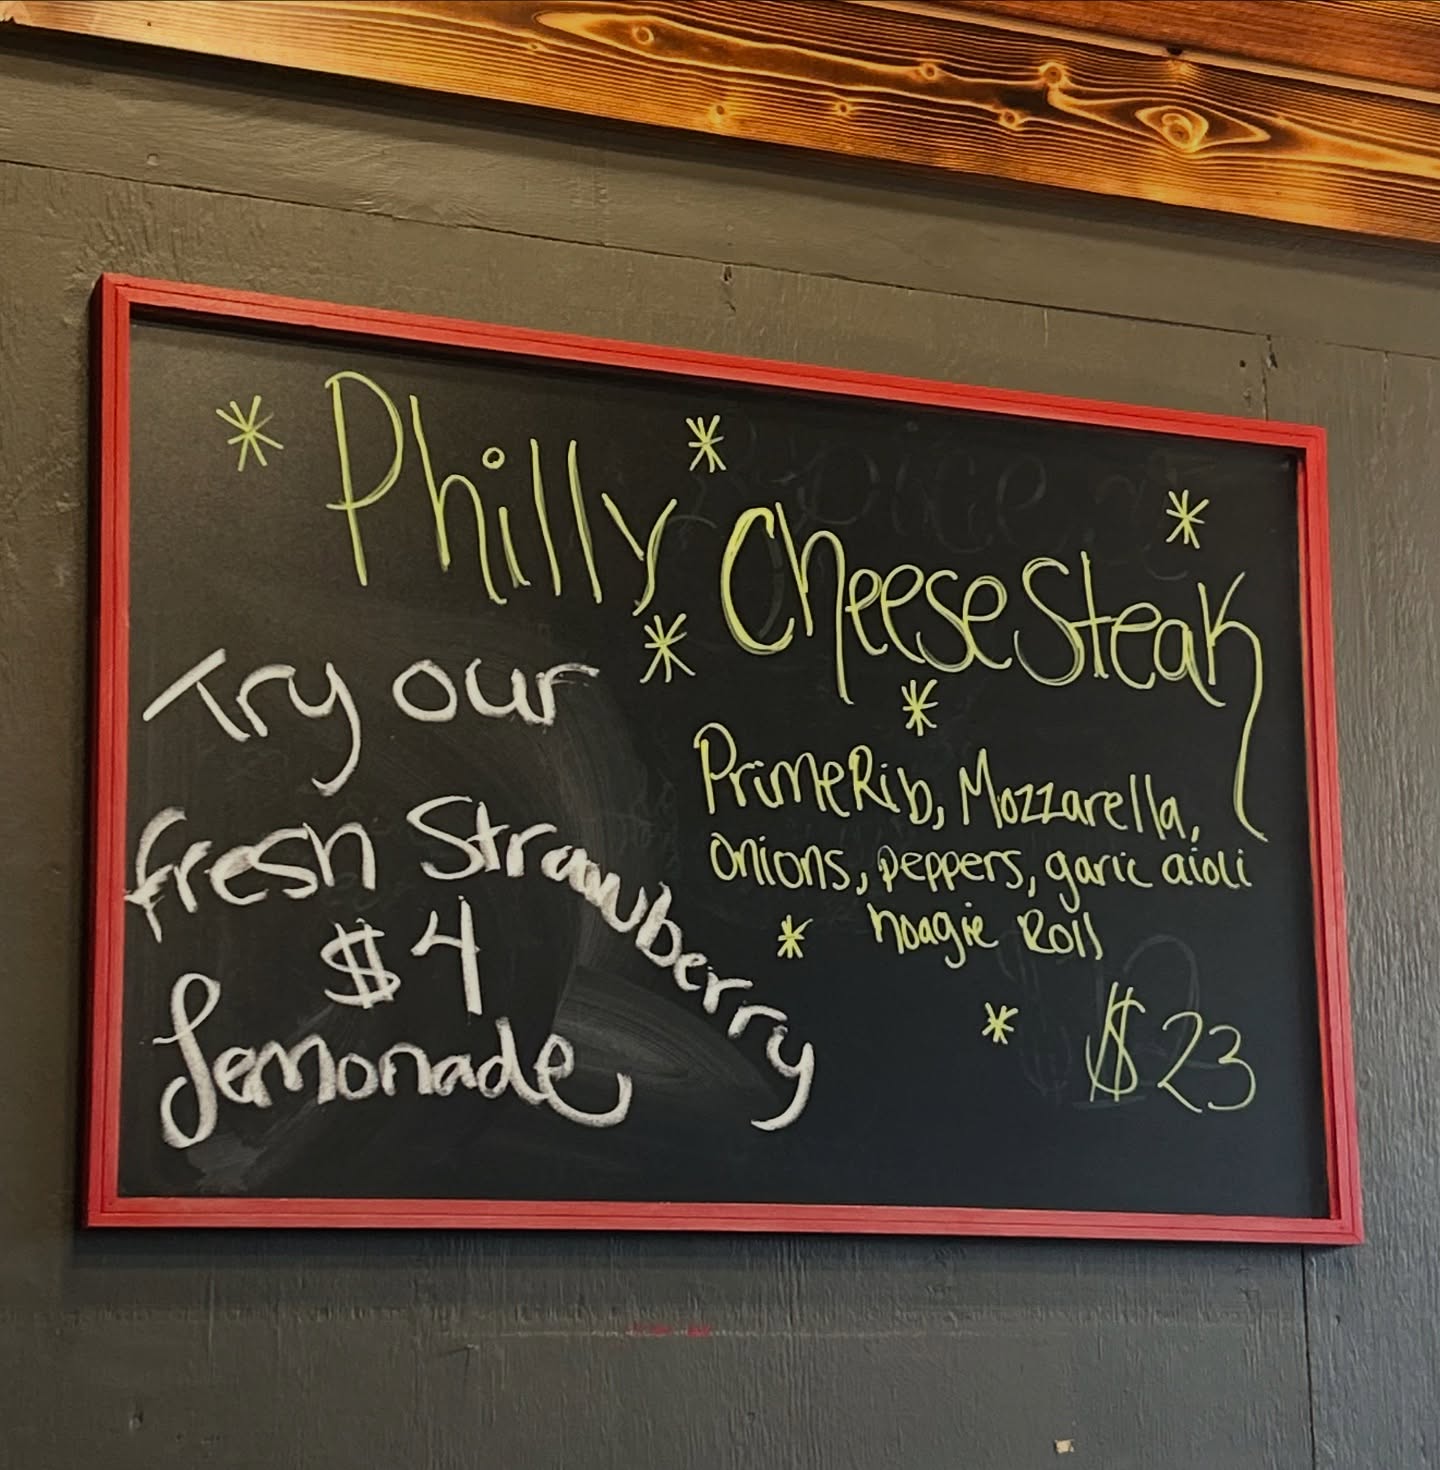 Philly
CheeseSteak
PrimeRib, Mozzarella,
onions, peppers, garic aioli
hoagie Roll
$23
Try our
fresh Strawberry
$4
Lemonade